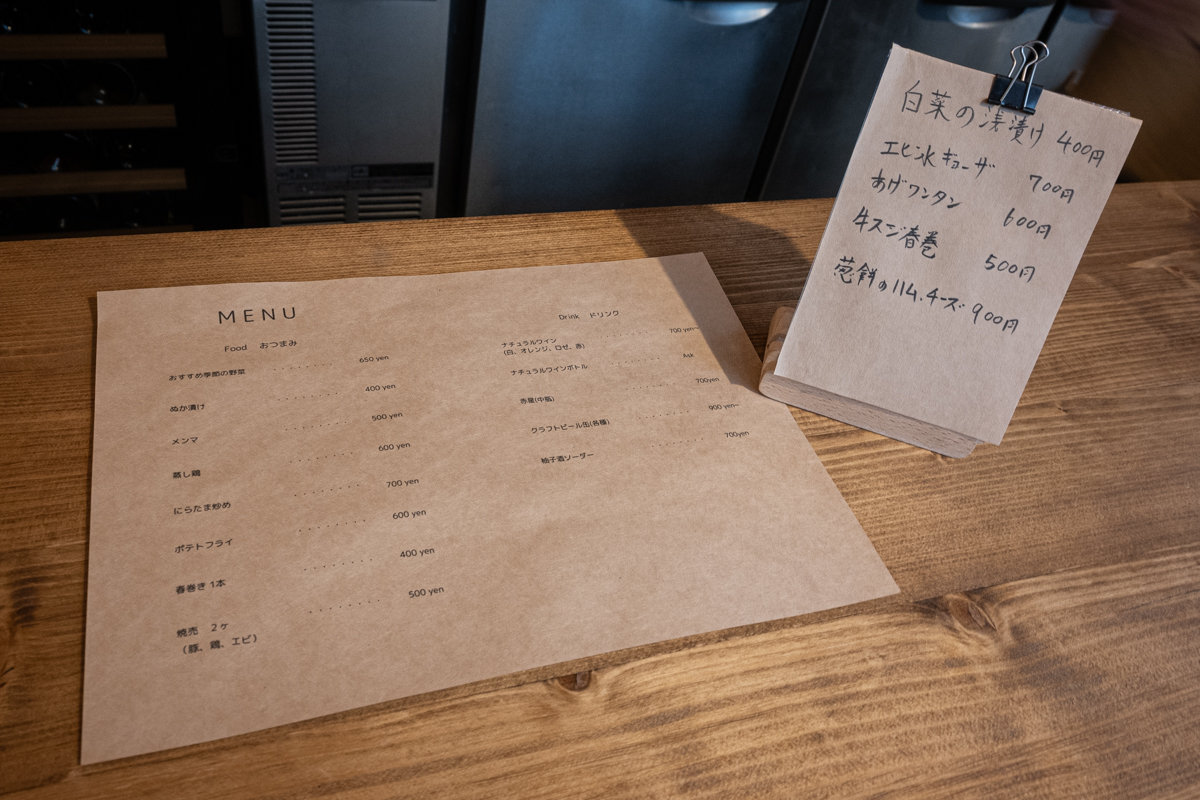 MENU
Food おつまみ
おすすめ季節の野菜 ........ 650 yen
ぬか漬け ........ 400 yen
メンマ ........ 500 yen
蒸し鶏 ........ 600 yen
にらたま炒め ........ 700 yen
ポテトフライ ........ 600 yen
春巻き 1本 ........ 400 yen
焼売 2ヶ ........ 500 yen
(豚、鶏、エビ)
Drink ドリンク
ナチュラルワイン ........ 700 yen〜
(白、オレンジ、ロゼ、赤)
ナチュラルワインボトル ........ Ask
赤星(中瓶) ........ 700yen
クラフトビール缶(各種) ........ 900 yen〜
柚子酒ソーダー ........ 700yen
白菜の浅漬け 400円
エビ水ギョーザ 700円
あげワンタン 600円
牛スジ春巻 500円
葱餅のハム.チーズ 900円